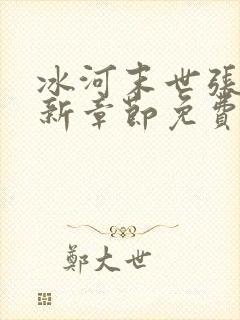 冰河末世張
新章節免費
鄭大世